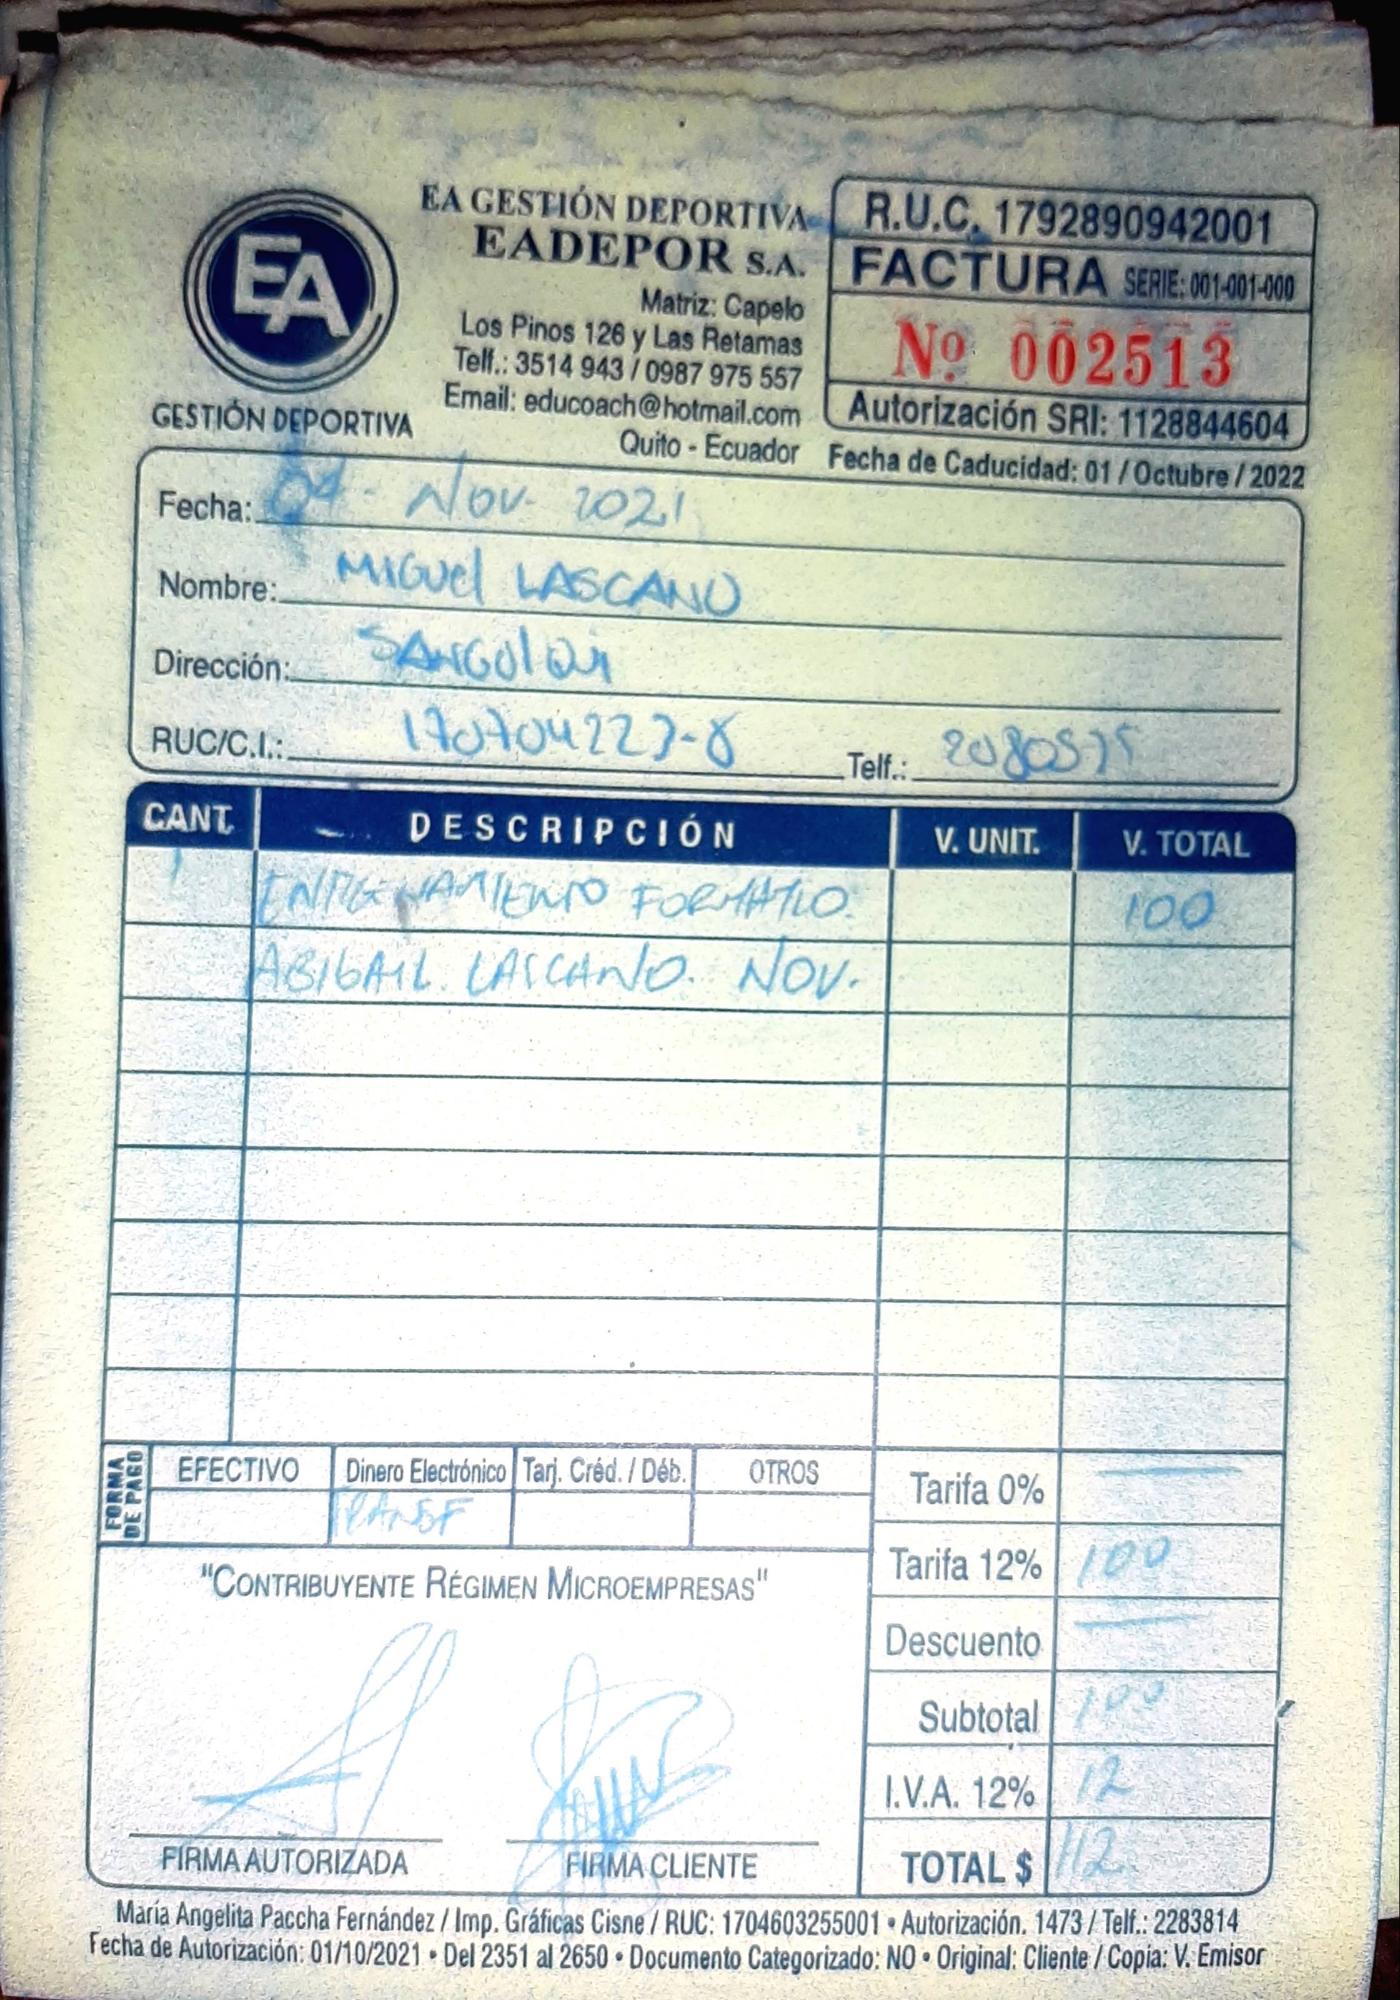 EA
GESTIÓN DEPORTIVA
EA GESTIÓN DEPORTIVA
EADEPOR S.A.
Matriz: Capelo
Los Pinos 126 y Las Retamas
Telf.: 3514 943 / 0987 975 557
Email: educoach@hotmail.com
Quito - Ecuador
R.U.C. 1792890942001
FACTURA SERIE: 001-001-000
Nº 002513
Autorización SRI: 1128844604
Fecha de Caducidad: 01 / Octubre / 2022
Fecha: 04 - Nov. 2021
Nombre: MIGUEl LASCANO
Dirección: SANGOlQUI
RUC/C.I.: 170704223-8 Telf.:
CANT. DESCRIPCIÓN V. UNIT. V. TOTAL
1 ENTRENAMIENTO FORMATIVO. 100
ABIGAIL LASCANO. NOV.
FORMA DE PAGO
EFECTIVO Dinero Electrónico Tarj. Créd. / Déb. OTROS
TRANSF
Tarifa 0% —
Tarifa 12% 100
Descuento —
Subtotal 100
I.V.A. 12% 12
TOTAL $ 112
"CONTRIBUYENTE RÉGIMEN MICROEMPRESAS"
FIRMA AUTORIZADA FIRMA CLIENTE
María Angelita Paccha Fernández / Imp. Gráficas Cisne / RUC: 1704603255001 • Autorización. 1473 / Telf.: 2283814
Fecha de Autorización: 01/10/2021 • Del 2351 al 2650 • Documento Categorizado: NO • Original: Cliente / Copia: V. Emisor